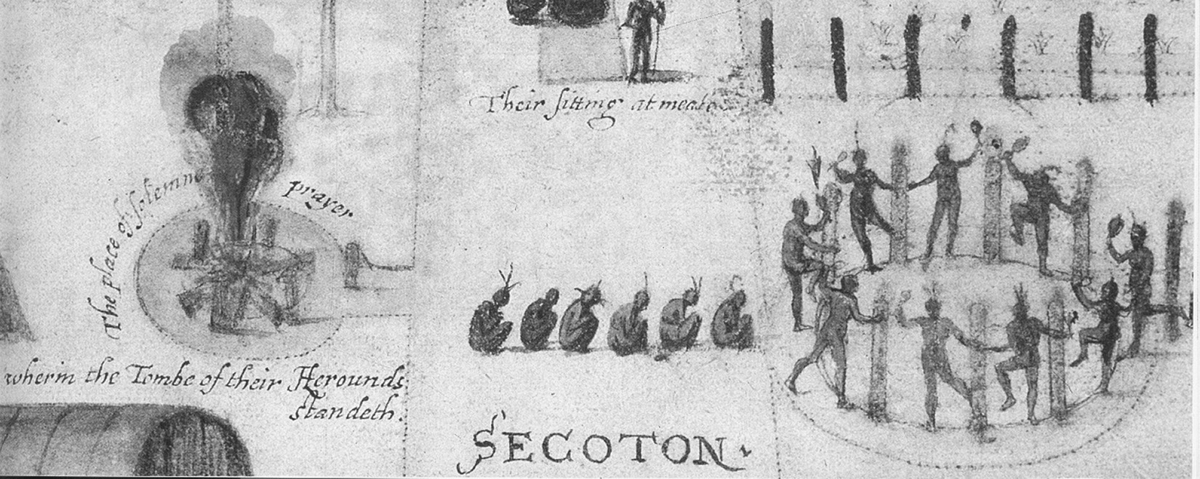 Their sitting at meate
The place of solemne prayer
wherin the Tombe of their Herounds
standeth.
SECOTON.